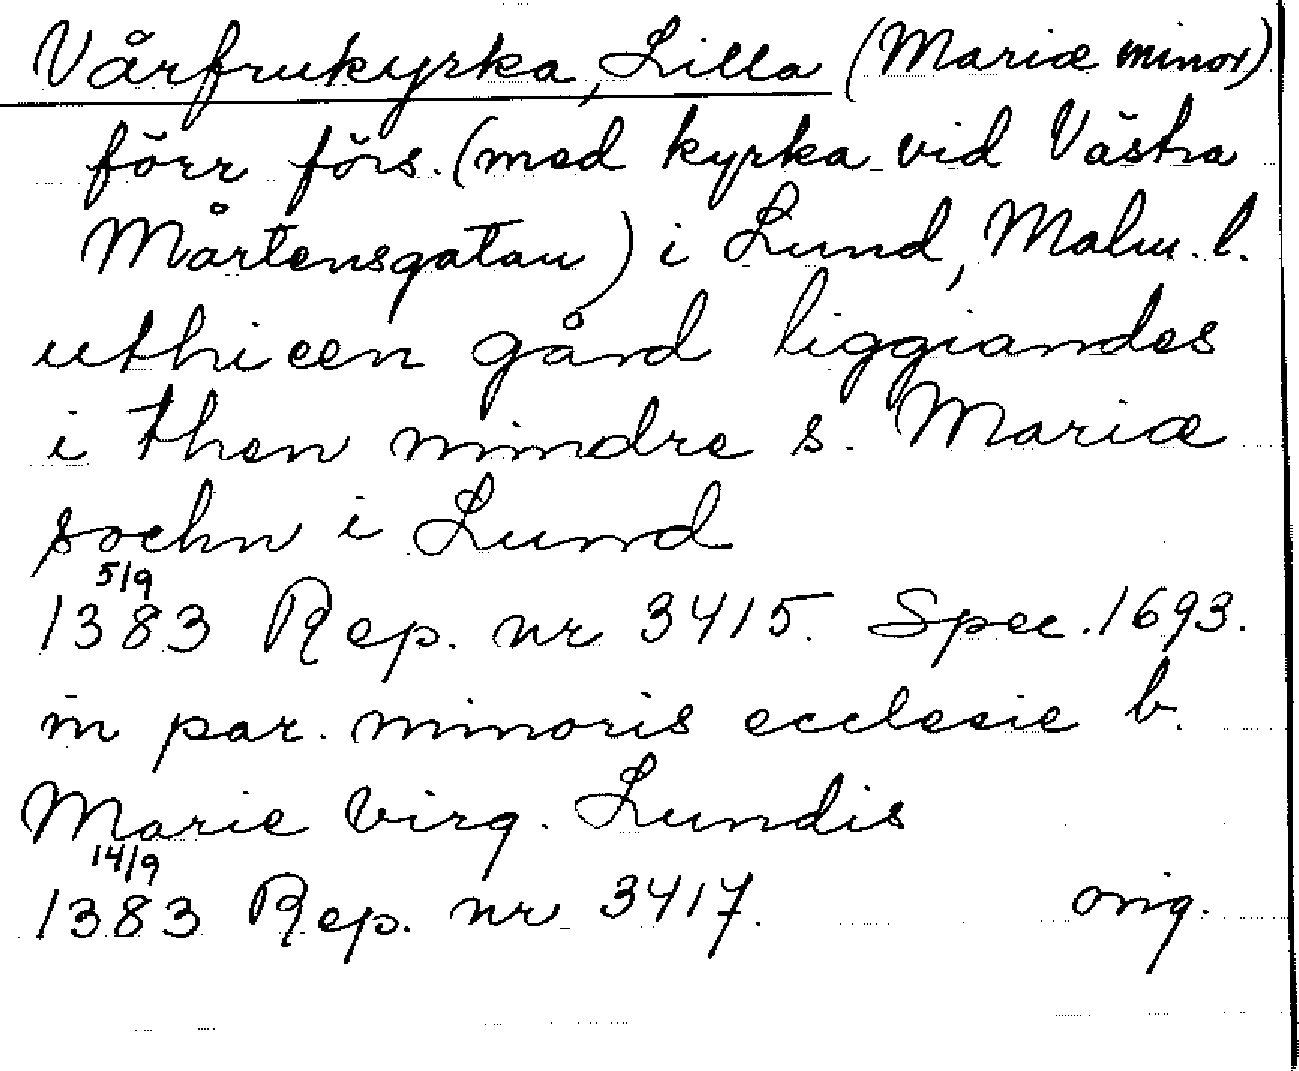 Vårfrukyrka, Lilla (Mariæ minor)
förr förs. (med kyrka vid Västra
Mårtensgatan) i Lund, Malm. l.
uthi een gård liggiandes
i then mindre s. Mariæ
sochn i Lund
5/9
1383 Rep. nr 3415. Spec. 1693.
in par. minoris ecclesie b.
Marie virg. Lundis
14/9
1383 Rep. nr 3417. orig.